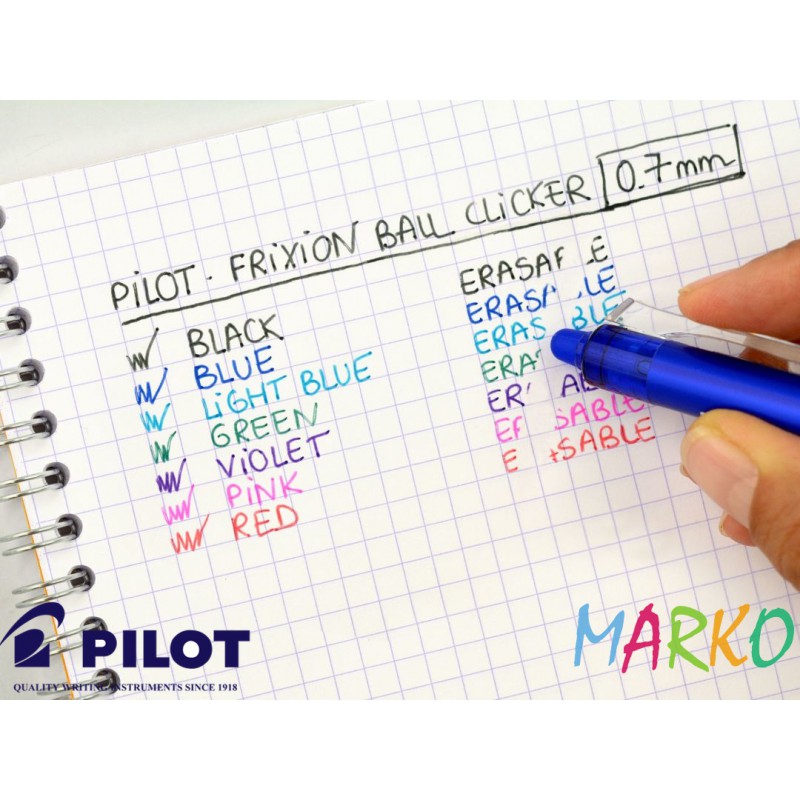 PiLOT - FRiXiON BALL CLiCKER 0.7mm
BLACK
BLUE
LiGHT BLUE
GREEN
ViOLET
PiNK
RED
ERASA E
ERAS LE
ERAS BLE
ERA
ER A
E SABLE
E SABLE
PILOT
QUALITY WRITING INSTRUMENTS SINCE 1918
MARKO